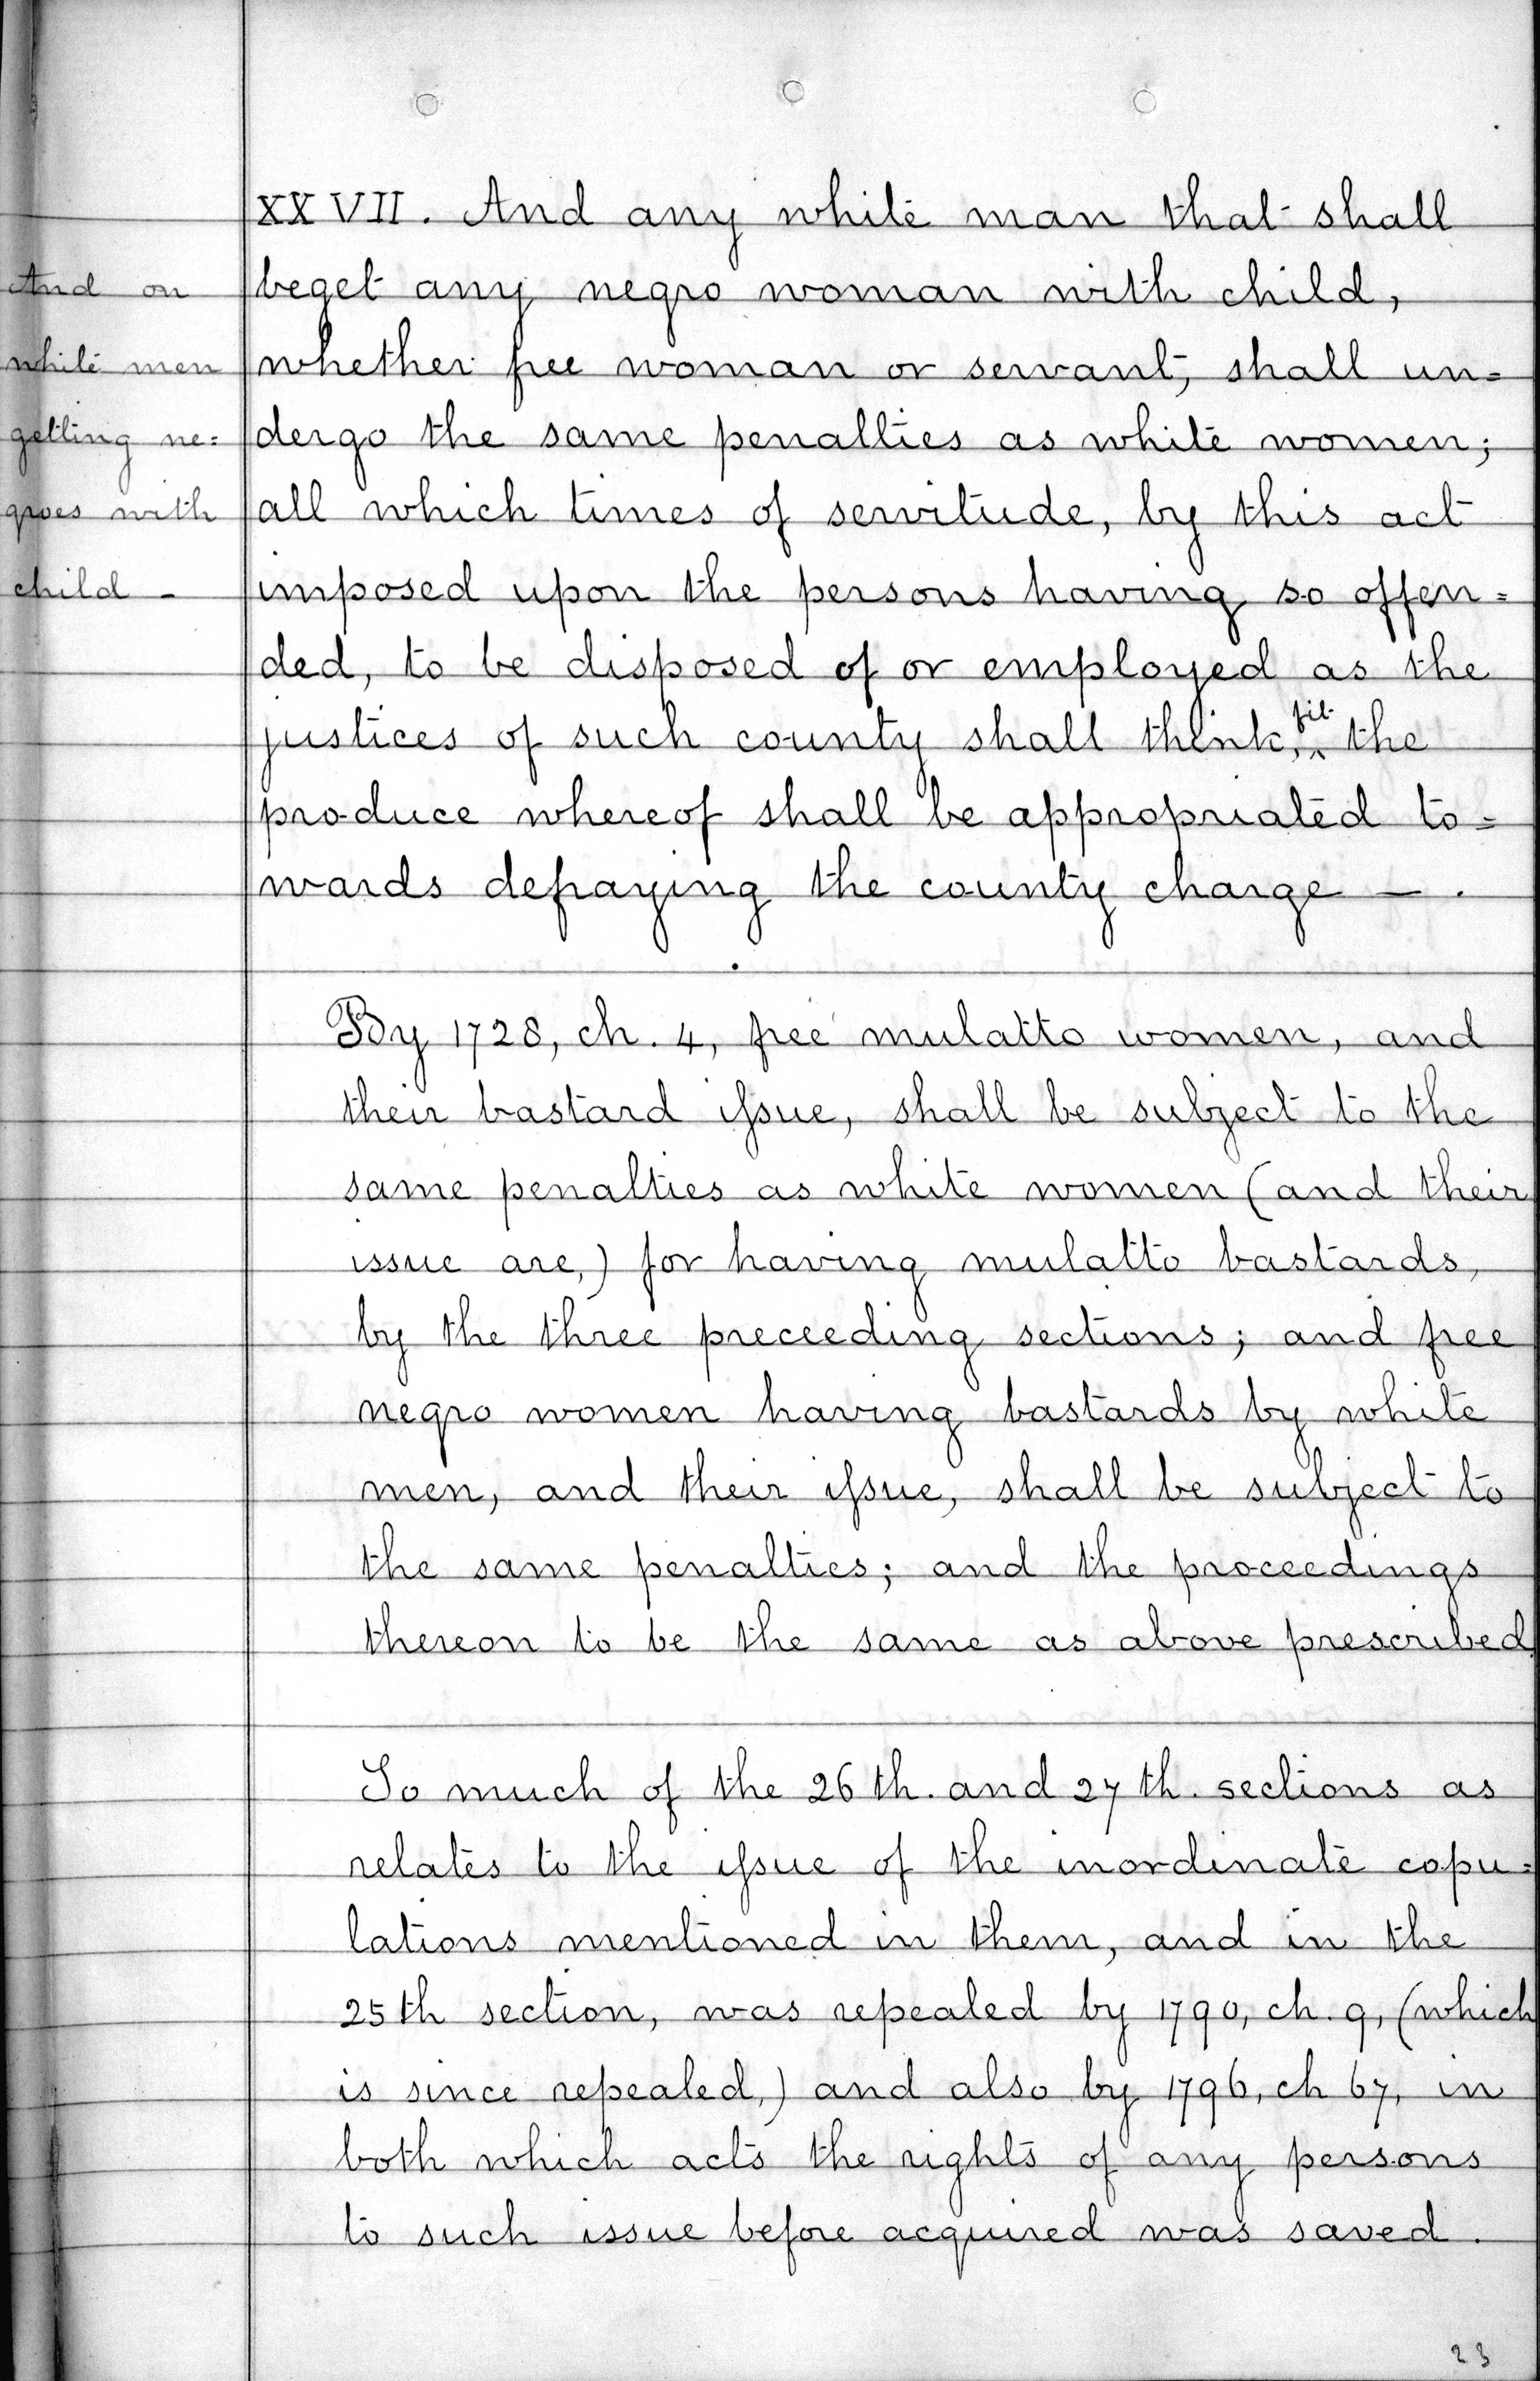 XXVII. And any white man that shall
And on
beget any negro woman with child,
white men
whether free woman or servant, shall un=
getting ne=
dergo the same penalties as white women;
groes with
all which times of servitude, by this act
child -
imposed upon the persons having so offen=
ded, to be disposed of or employed as the
justices of such county shall think, fit the
produce whereof shall be appropriated to=
wards defraying the county charge — .
By 1728, ch. 4, free mulatto women, and
their bastard issue, shall be subject to the
same penalties as white women (and their
issue are,) for having mulatto bastards,
by the three preceeding sections; and free
negro women having bastards by white
men, and their issue, shall be subject to
the same penalties; and the proceedings
thereon to be the same as above prescribed.
So much of the 26th. and 27th. sections as
relates to the issue of the inordinate copu=
lations mentioned in them, and in the
25th section, was repealed by 1790, ch. 9, (which
is since repealed,) and also by 1796, ch 67, in
both which acts the rights of any persons
to such issue before acquired was saved.
23